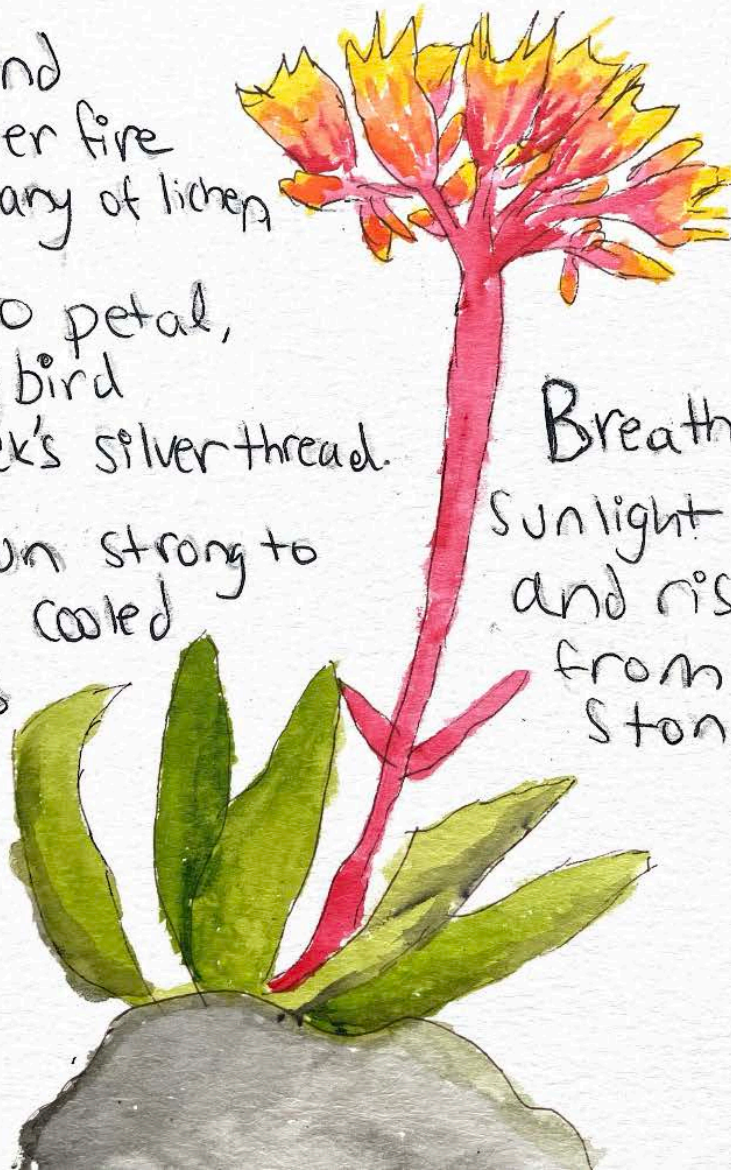 nd
er fire
any of lichen
o petal,
bird
ek's silver thread.
un strong to
cooled
Breath
sunlight
and ris
from
Ston